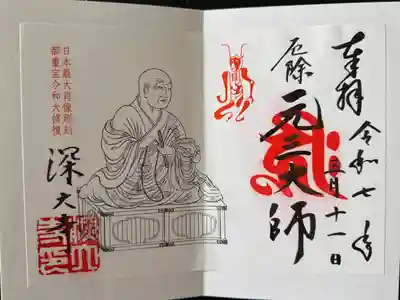 奉拝 令和七年
月十一日
厄除 元三大師
日本最大肖像彫刻
令和大修復
深大寺